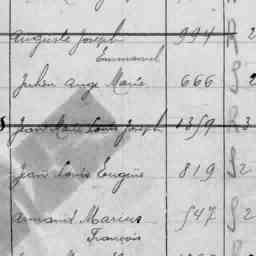 Auguste Joseph 994 R 2
Emmanuel
Julien Ange Marie 666 S 2
Jean Marie Louis Joseph 1359 R 3
Jean Louis Eugène 819 S 2
Armand Marcus 547 S 2
François